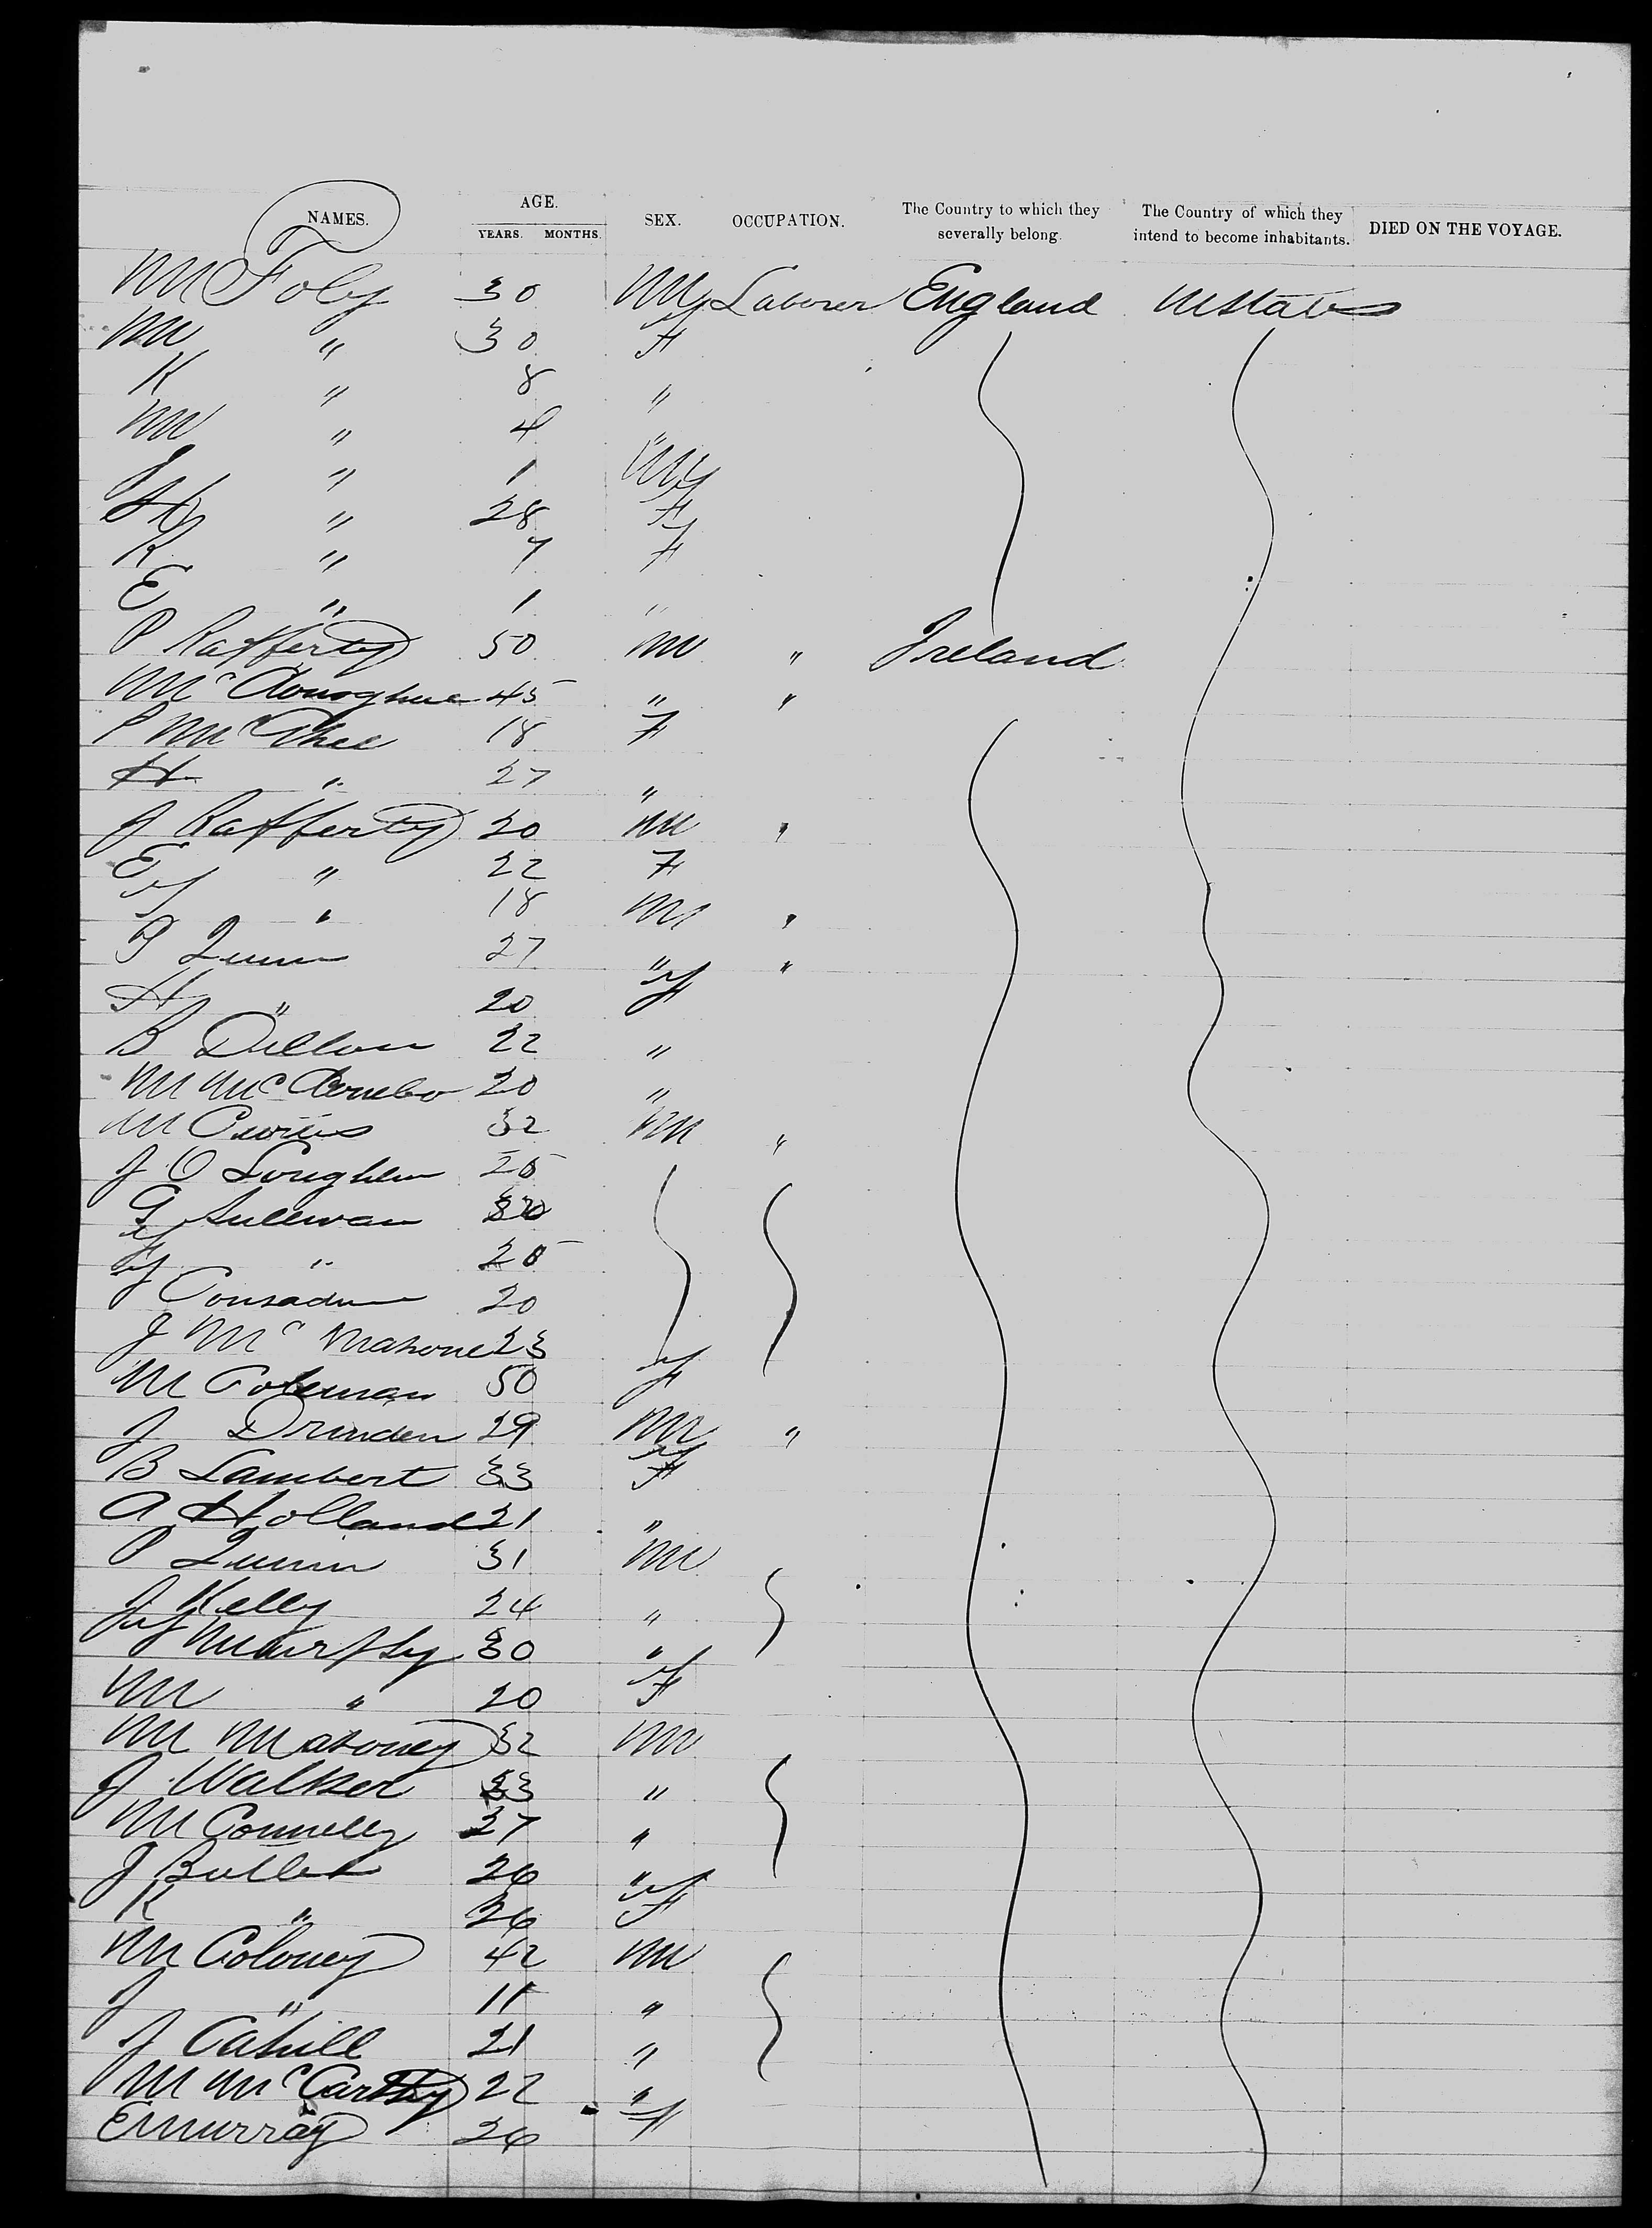 NAMES. AGE. SEX. OCCUPATION. The Country to which they severally belong. The Country of which they intend to become inhabitants. DIED ON THE VOYAGE.
YEARS. MONTHS.
M Foley 30 M Laborer England U States
M " 30 F
K " 8 "
M " 4 "
J " 1 M
H " 28 F
K " 7 F
E " 1 "
P Rafferty 50 M " Ireland
M McDonoghue 45 " "
P McPhee 18 F
H " 27 "
J Rafferty 20 M "
E " 22 F
J " 18 M "
P Quinn 27 " "
H " 20 F
B Dillon 22 "
M Mc 20 "
M 32 M "
J O Loughlen 25
G Sullivan
J " 25
J Consadine 20
J Mc Mahone 23
M Coleman 50 F
J Drinden 29 M "
B Lambert 33 F
A Holland 21 "
P Quinn 31 M
J Kelly 24 "
J Murphy 30 "
M " 20 F
M Mahoney 32 M
J Walker 33 "
M Connelly 27 "
J Butler 26 "
K " 26 F
M Coloney 42 M
J " 11 "
J Cahill 21 "
M McCarthy 22 "
E Murray 26 F